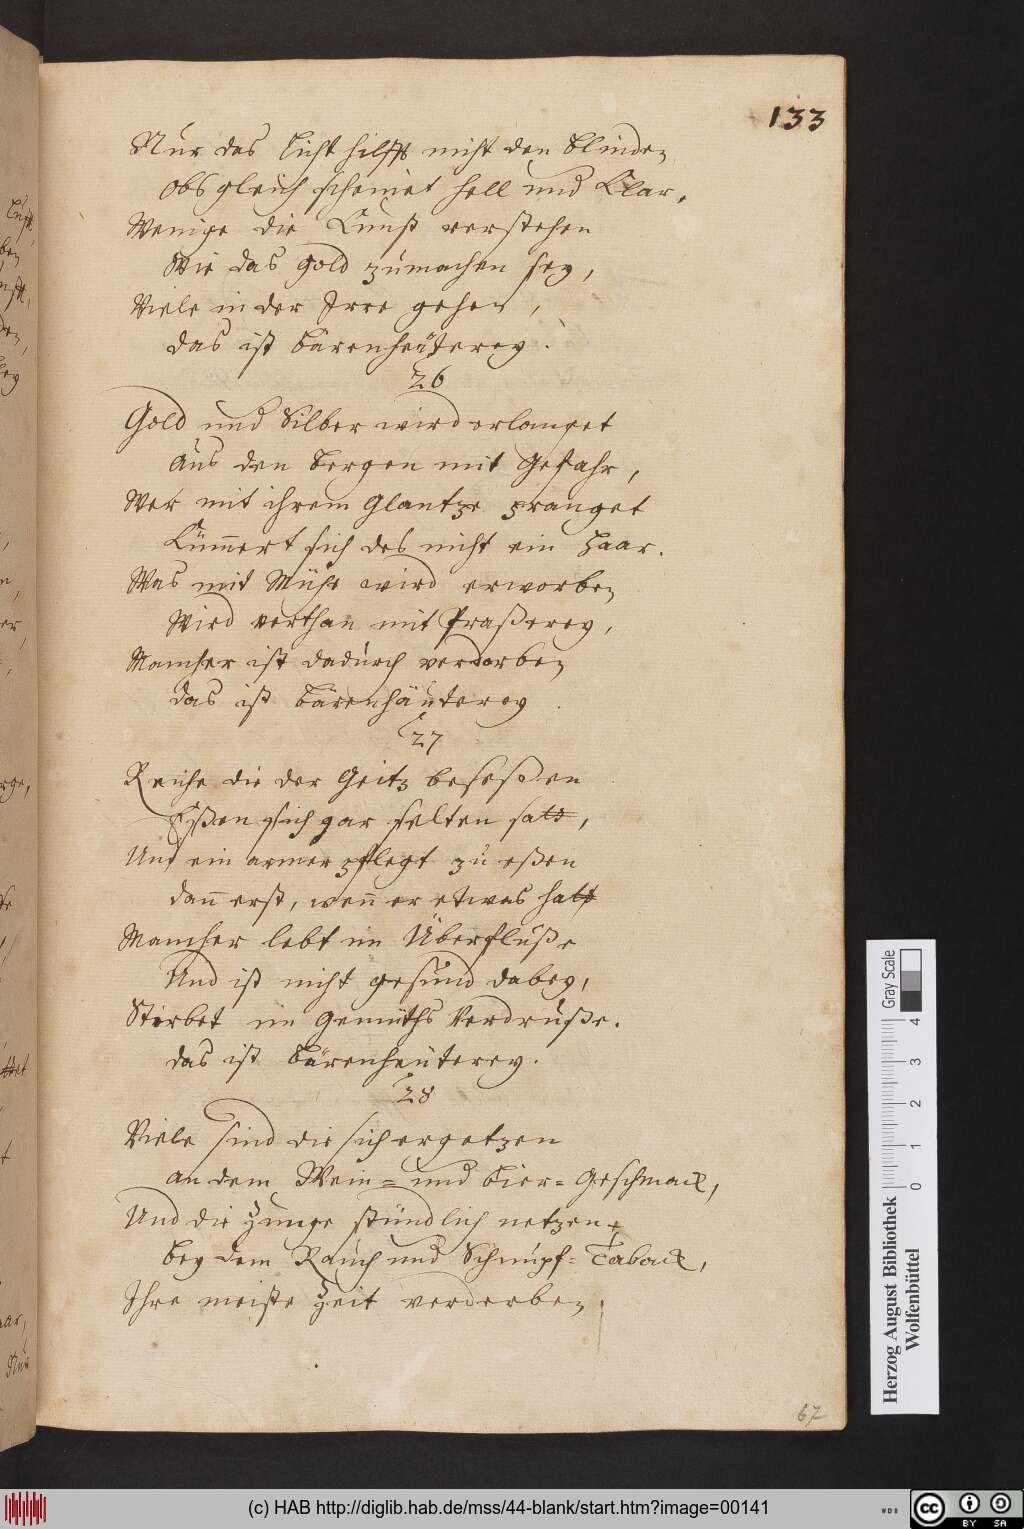 133
Nur das Licht hilfft nicht den Blinden
Obs gleich scheinet hell und Clar,
Wenige die Kunst verstehen
Wie das Gold zumachen sey,
Viele in der Irre gehen,
das ist Bärenheüterey.
26
Gold und Silber wird erlanget
Aus den Bergen mit Gefahr,
Wer mit ihrem Glantze pranget
Kümmert sich des nicht ein Haar.
Was mit Mühe wird erworben
Wird verthan mit Praßerey,
Mancher ist dadurch verdorben
das ist Bärenhäuterey
27
Reiche die der Geitz beseßen
Eßen sich gar selten satt,
Und ein armer pflegt zu eßen
dañ erst, weñ er etwas hatt
Mancher lebt im Überfluße
Und ist nicht gesund dabey,
Stirbet im Gemüths Verdruße.
das ist Bärenheuterey.
28
Viele sind die sich ergetzen
an dem Wein= und Bier= Geschmack,
Und die Zunge stündlich netzen
Bey dem Rauch und Schnupf= Taback,
Ihre meiste Zeit verderben
67
Gray Scale
0 1 2 3 4
Herzog August Bibliothek
Wolfenbüttel
(c) HAB http://diglib.hab.de/mss/44-blank/start.htm?image=00141
WDB
CC BY SA